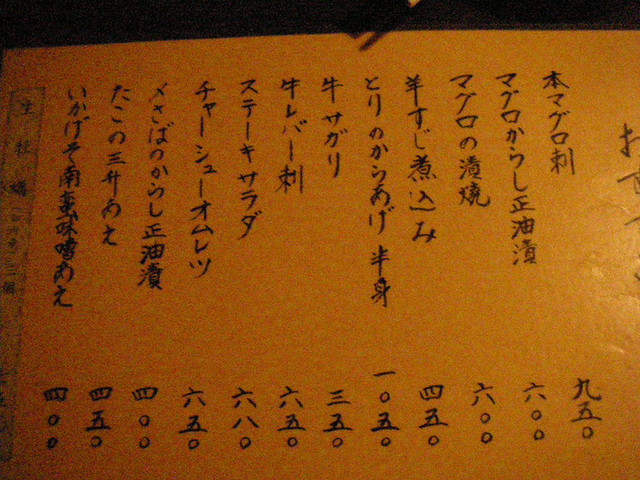 おす
本マグロ刺 九五〇
マグロからし正油漬 六〇〇
マグロの漬焼 六〇〇
羊すじ煮込み 四五〇
とりのからあげ半身 一〇五〇
牛サガリ 三五〇
牛レバー刺 六五〇
ステーキサラダ 六八〇
チャーシューオムレツ 六五〇
〆さばのからし正油漬 四〇〇
たこの三升あえ 四五〇
いかげそ南蛮味噌あえ 四〇〇
生牡蠣